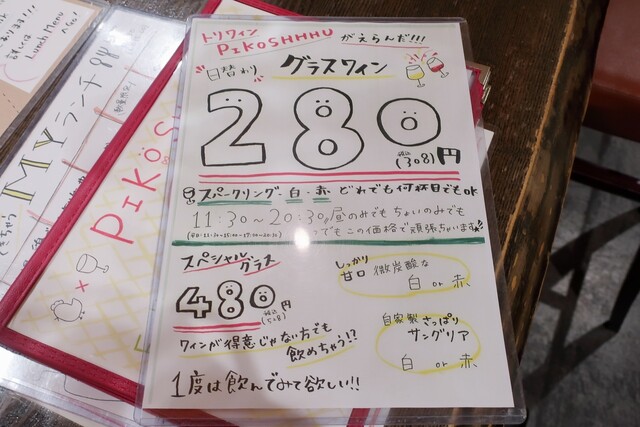 トリワイン
PIKOSHHHU がえらんだ!!!
日替わり グラスワイン
280円
税込
(308)
スパークリング・白・赤 どれでも何杯目でもOK
11:30〜20:30 昼のみでもちょいのみでも
この価格で頑張ちいます
スペシャルグラス
480円
税込
(508)
ワインが得意じゃない方でも
飲めちゃう!?
1度は飲んでみて欲しい!!
しっかり
甘口 微炭酸な
白 or 赤
自家製 さっぱり
サングリア
白 or 赤
MYランチ
PIKOS
Lunch Menu